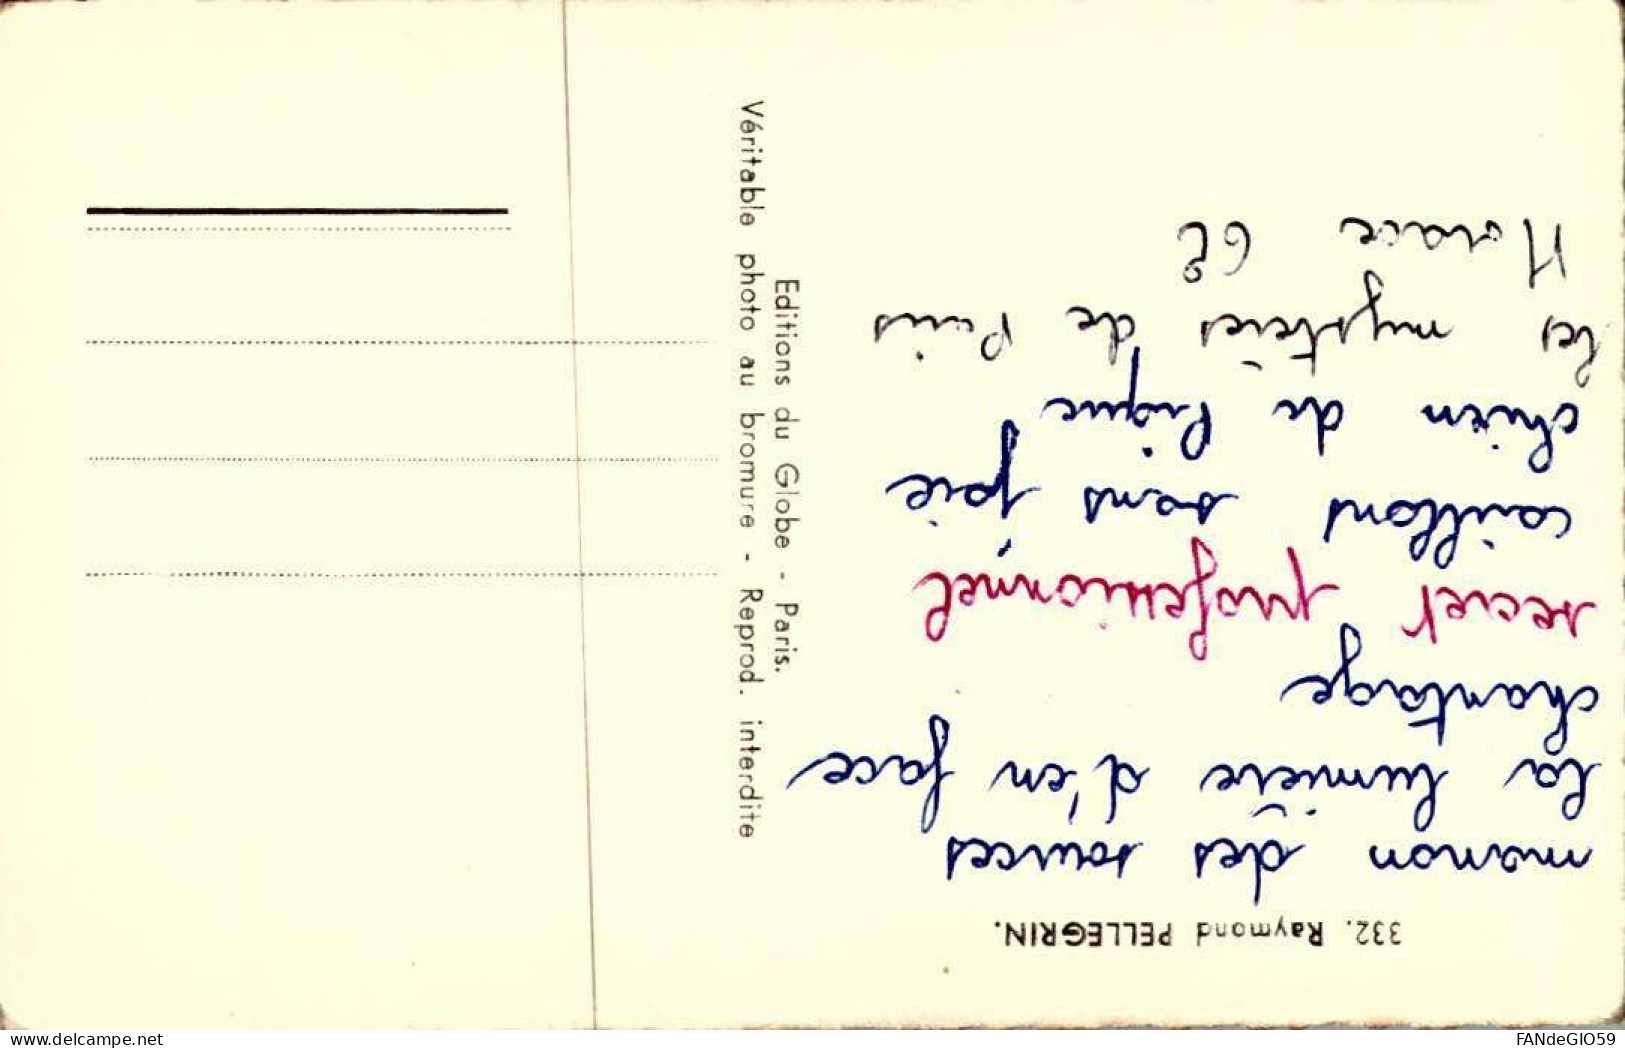 332. Raymond PELLEGRIN.
manon des sources
la lumière d'en face
chantage
secret professionnel
caillons sans joie
chien de pique
les mystères de Paris
Horace 62
Editions du Globe - Paris.
Véritable photo au bromure - Reprod. interdite
delcampe.net
FANdeGIO59